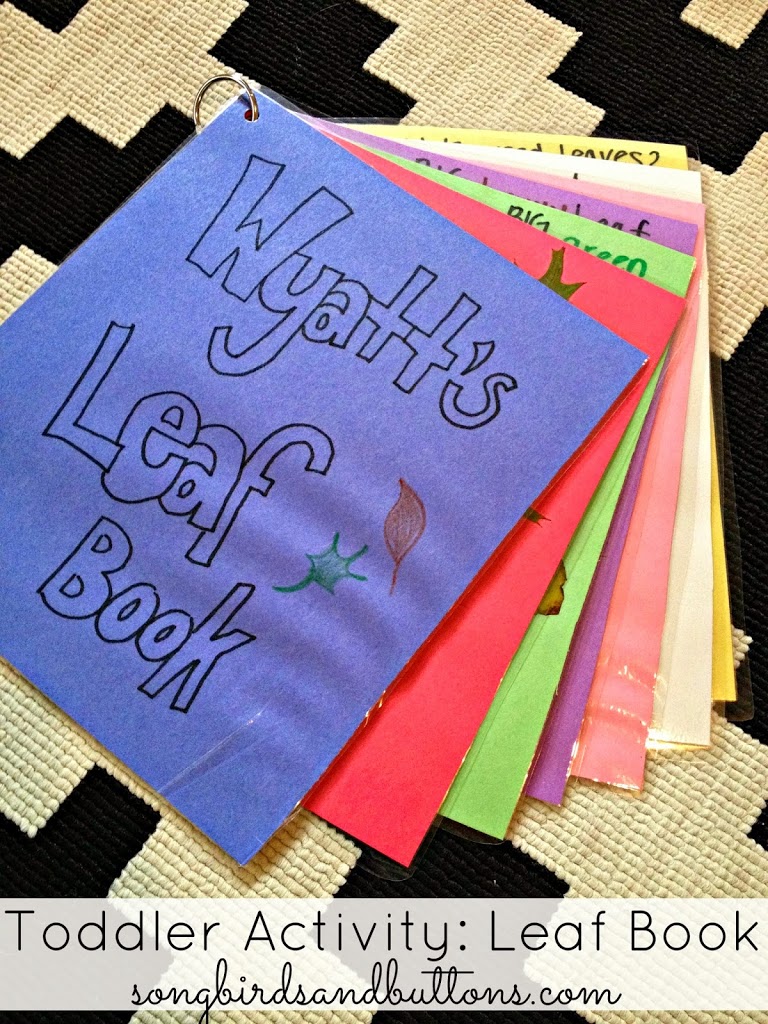 Wyatt's
Leaf
Book
Leaves?
BIG
Leaf
BIG green
Toddler Activity: Leaf Book
songbirdsandbuttons.com